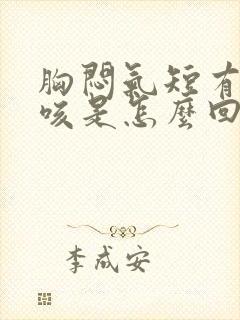 胸悶氣短有
咳是怎麼回
李成安